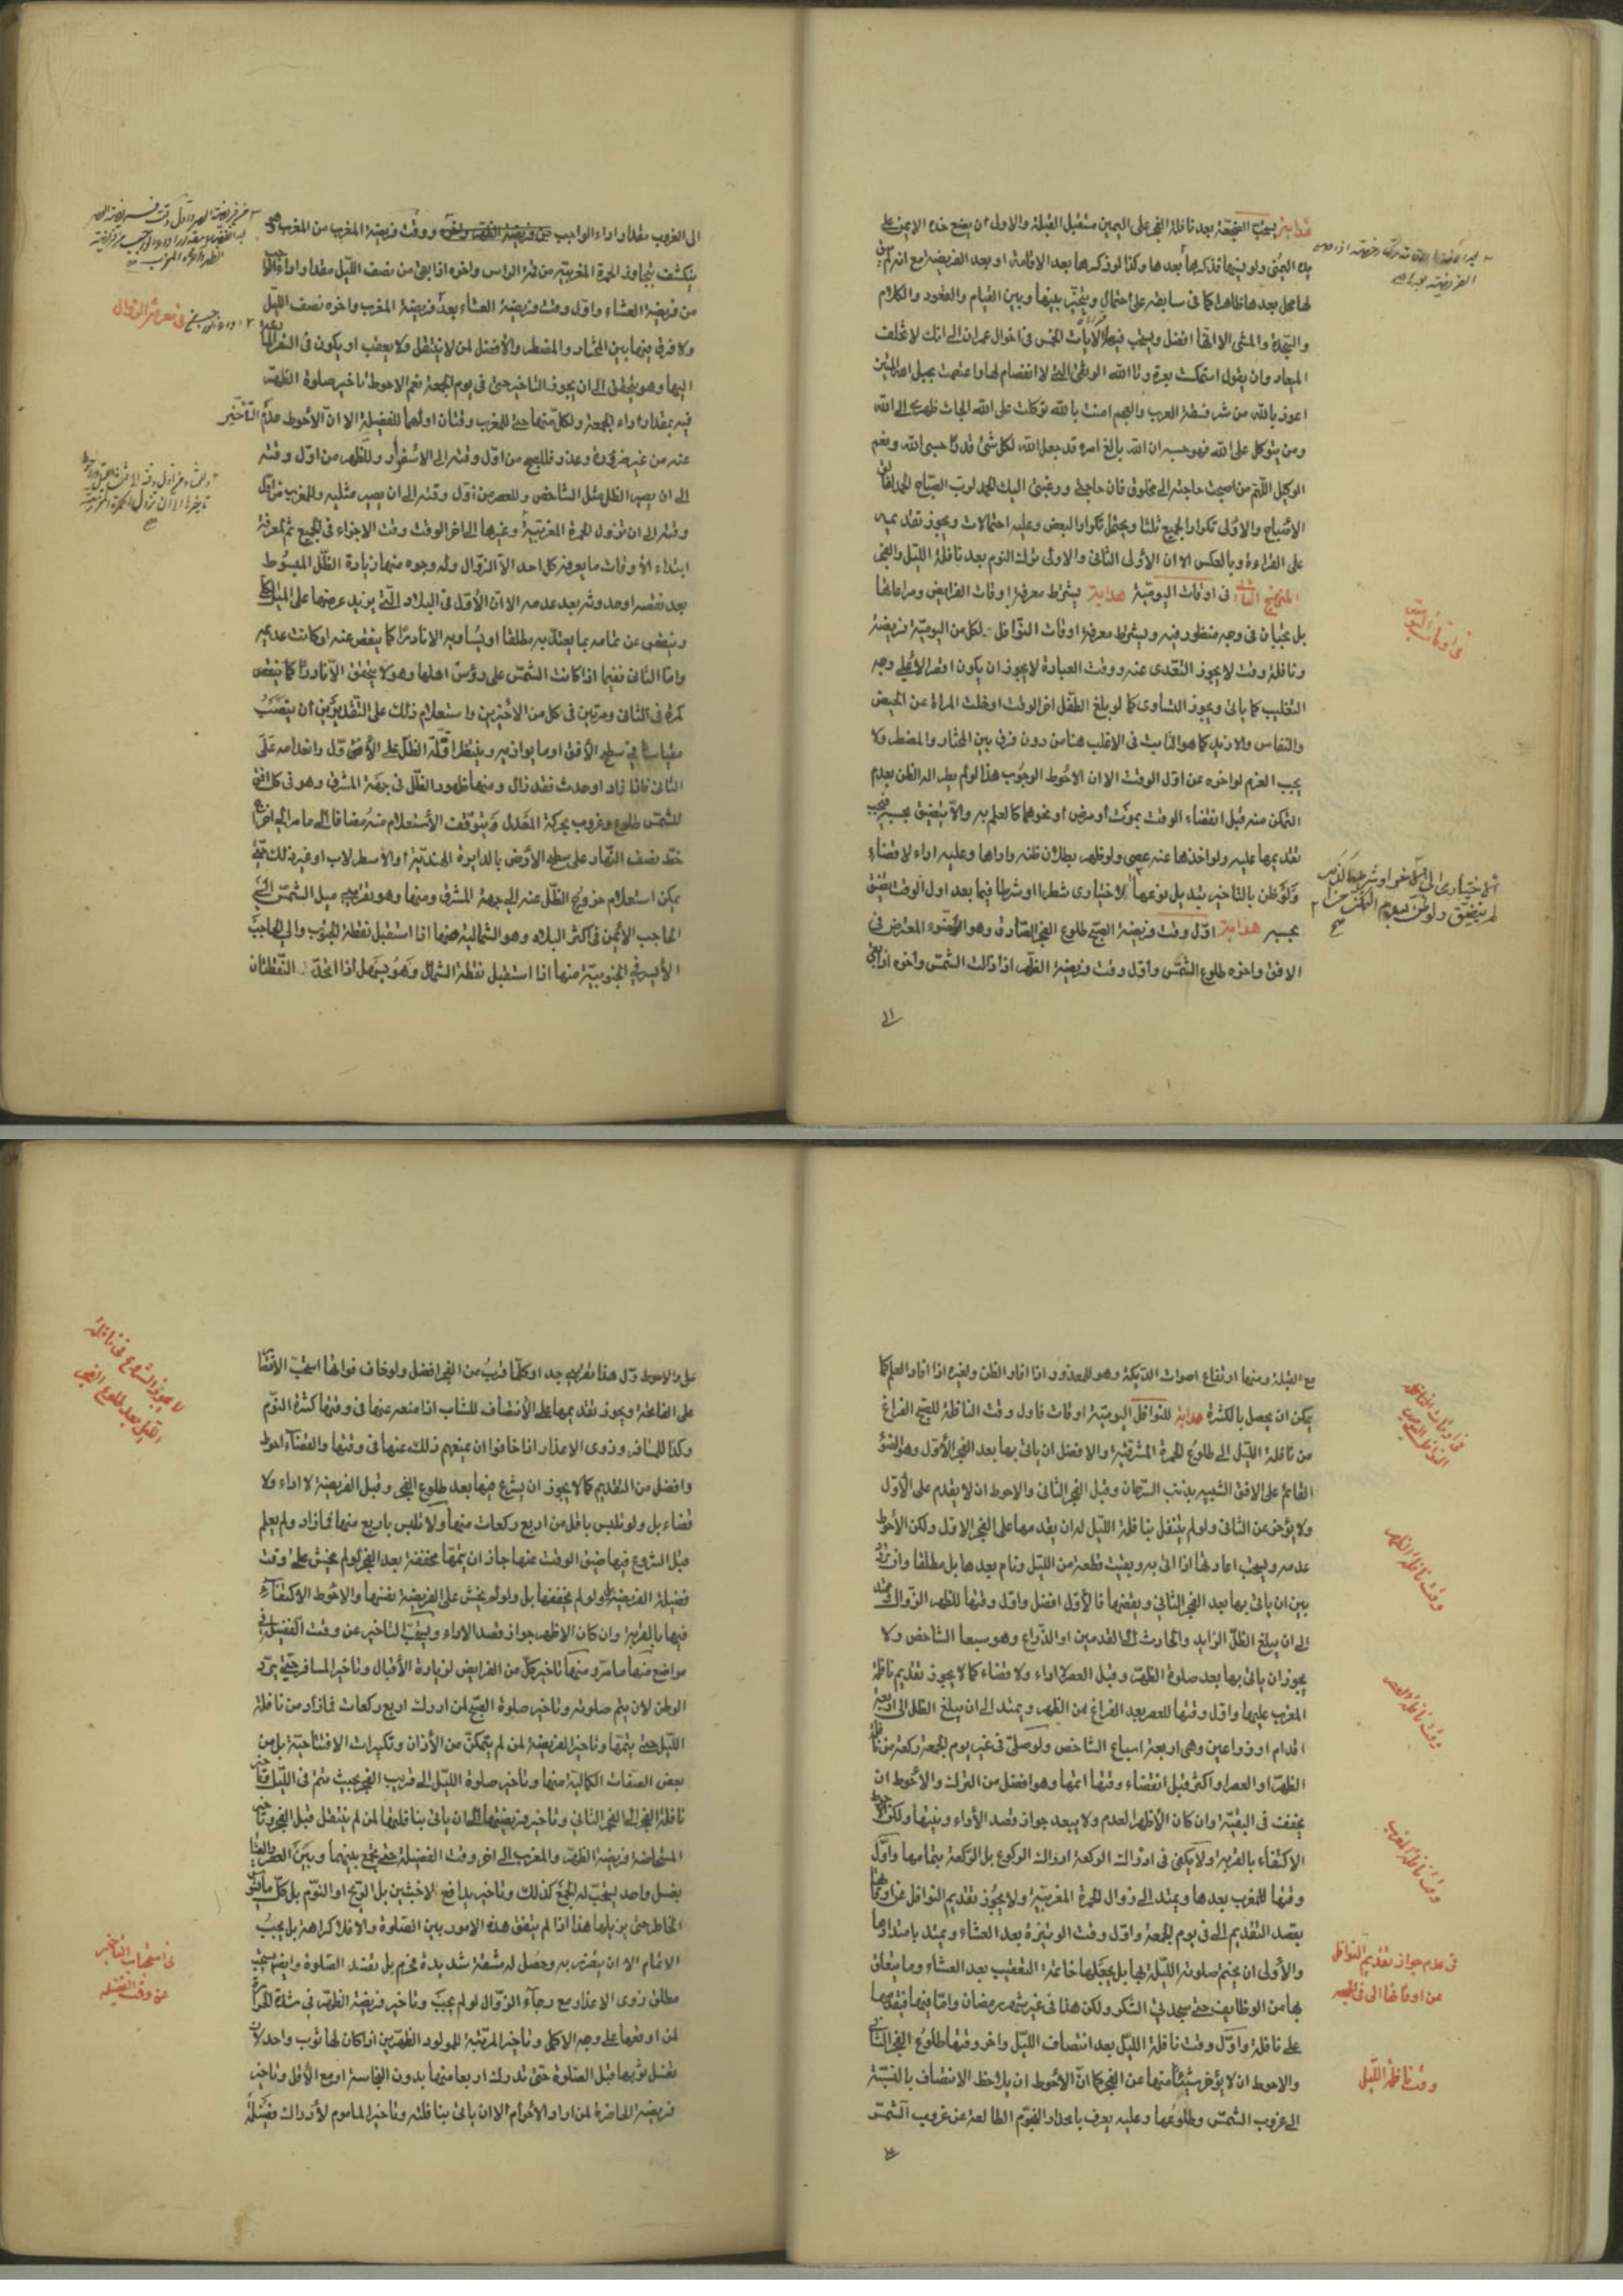 هداية يستحب الضجعة بعد نافلة الفجر على اليمين مستقبل القبلة والاولى ان يضع خده الايمن على
يده اليمنى ولو نسيها فذكرها بعدها وكذا لو ذكرها بعد الاقامة او بعد الفريضة مع انه لم يبق
لها محل بعدها ظاهرا كما في سابقه على احتمال ويتخير بينها وبين القيام والقعود والكلام
والسجدة والمشى الا انها افضل ويستحب فيها الآيات الخمس من اخر آل عمران الى انك لا تخلف
الميعاد وان يقول استمسكت بعروة الله الوثقى التي لا انفصام لها واعتصمت بحبل الله المتين
اعوذ بالله من شر فسقة العرب والعجم امنت بالله توكلت على الله الجأت ظهرى الى الله
ومن يتوكل على الله فهو حسبه ان الله بالغ امره قد جعل الله لكل شئ قدرا حسبي الله ونعم
الوكيل اللهم من اصبحت حاجته الى مخلوق فان حاجتي ورغبتي اليك الحمد لرب الصباح الحمد لفالق
الاصباح والاولى تكرار الجميع ثلثا ويحتمل تكرار البعض وعليه احتمالات ويجوز تقديمه
على القراءة وبالعكس الا ان الأولى الثاني والاولى ترك النوم بعد نافلة الليل والفجر
المنهج الثاني في اوقات اليومية هداية يشترط معرفة اوقات الفرايض ومراعاتها
بل يجبان في وجه منظور فيه ويشترط معرفة اوقات النوافل لكل من اليومية فريضة
ونافلة وقت لا يجوز التعدى عنه ووقت العبادة لا يجوز ان يكون اقصر الا على وجه
التغليب كما يأتي ويجوز التساوى كما لو بلغ الطفل اخر الوقت او خلت المراة عن الحيض
والنفاس والازيد كما هو الثابت في الاغلب هنا من دون فرق بين المختار والمضطر ولا
يجب العزم لو اخره عن اول الوقت الا ان الاحوط الوجوب هذا لو لم يطر اله الظن بعدم
التمكن منه قبل انقضاء الوقت بموت أو مرض أو نحوهما كالعلم به والا يتضيق بحسبه فيجب
تقديمها عليه ولو اخذها عنه عصى ولو ظهر بطلان ظنه واداها وعليه اداء لا قضاء
ولو ظن بالتاخير تبديل نوعها الاختيارى شطرا او شرطا فيما بعد اول الوقت يضيق
بحسبه هداية اول وقت فريضة الصبح طلوع الفجر الصادق وهو الضوء المعترض في
الافق واخره طلوع الشمس واول وقت فريضة الظهر اذا زالت الشمس واخره اذا بقي
الى
في اوقات اليومية
الى الغروب مقدار اداء الواجب ووقت فريضة المغرب من المغرب
ينكشف بتجاوز الحمرة المغربية من قمة الراس واخره اذا بقى من نصف الليل مقدار اداء الواجب
من فريضة العشاء واول وقت فريضة العشاء بعد فريضة المغرب واخره نصف الليل
ولا فرق بينهما بين المختار والمضطر والأفضل لمن لا يتنفل ولا يعقب او يكون في السفر
اليها وهو ينحطى الى ان يجوز التاخير حتى في يوم الجمعة نعم الاحوط تاخير صلوة الظهر
فيه بمقدار اداء الجمعة ولكل منهما حتى للمغرب وقتان اولهما للفضيلة الا ان الأحوط عدم التأخير
عنه من غير ضرورة وعذر فللصبح من اول وقته الى الاسفرار وللظهر من اول وقته
الى ان يصير الظل مثل الشاخص وللعصر من اول وقته الى ان يصير مثليه وللمغرب من اول
وقته الى ان تزول الحمرة المغربية وغيرها الى اخر الوقت وقت الاجزاء في الجميع ثم معرفة
ابتداء الاوقات ما يعرفه كل احد الا الزوال وله وجوه منها زيادة الظل المبسوط
بعد نقصه او حدوثه بعد عدمه الا ان الأول في البلاد التي يزيد عرضها على الميل
وينقص عن تمامه بما يعتد به مطلقا او يساويه الا نادرا كما ينقص عنه او كانت عديمه
واما الثاني ففيما اذا كانت الشمس على رؤس اهلها وهو لا يتحقق الا نادرا كما ينقص
كمرة في الثاني ومرتين في كل من الأخيرين واستعلام ذلك على التقديرين ان ينصب
مقياسا في سطح الأفق او ما يوازيه وينتظر اقلة الظل على الأفق الاول وانعدامه على
الثاني فاذا زاد او حدث فقد زال ومنها ظهور الظل في جهة المشرق وهو في كل افق
للشمس طلوع وغروب بحركة المعدل ويتوقف الأستعلام منه مضافا الى ما مر الى اخراج
خط نصف النهار على سطح الأرض بالدايرة الهندية او الاسطرلاب او غير ذلك
يمكن استعلام خروج الظل عنه الى جهة المشرق ومنها وهو تقريبى ميل الشمس الى
الحاجب الأيمن في اكثر البلاد وهو الشمالية منها اذا استقبل نقطة الجنوب والى الحاجب
الأيسر في الجنوبية منها اذا استقبل نقطة الشمال وهو يسهل اذا اتحد النقطتان
في معرفة الزوال
مع القبلة ومنها ارتفاع اصوات الديكة وهو للمعذور اذا افاد الظن ولغيره اذا افاد العلم كما
يمكن ان يحصل بالكثرة هداية للنوافل اليومية اوقات فاول وقت النافلة للصبح الفراغ
من نافلة الليل الى طلوع الحمرة المشرقية والافضل ان ياتي بها بعد الفجر الأول وهو الضوء
القائم على الافق الشبيه بذنب السرحان وقبل الفجر الثاني والاحوط ان لا يقدم على الأول
ولا يؤخر عن الثاني ولو لم يتنفل بنافلة الليل له ان يقدمها على الفجر الاول ولكن الأحوط
عدمه ويستحب اعادتها اذا اتى به وبقيت قطعة من الليل ونام بعدها بل مطلقا وان
بين ان ياتي بها بعد الفجر الثاني ويقضيها فالأول افضل واول وقتها للظهر الزوال
الى ان يبلغ الظل الزايد والحادث الى القدمين او الذراع وهو سبعا الشاخص ولا
يجوز ان ياتي بها بعد صلوة الظهر وقبل العصر لا اداء ولا قضاء كما لا يجوز تقديم نافلة
المغرب عليها واول وقتها للعصر بعد الفراغ من الظهر ويمتد الى ان يبلغ الظل الى اربعة
اقدام او ذراعين وهى اربعة اسباع الشاخص ولو صلى في غير يوم الجمعة ركعة من نافلة
الظهر او العصر او اكثر قبل انقضاء وقتها اتمها وهو افضل من الترك والأحوط ان
يخفف في البقية وان كان الأظهر العدم ولا يبعد جواز قصد الأداء وبنيتها ولكن الاحوط
الاكتفاء بالقربة ولا يكفى في ادراك الركعة ادراك الركوع بل الركعة بتمامها واول
وقتها للمغرب بعدها ويمتد الى زوال الحمرة المغربية ولا يجوز تقديم النوافل عن اوقاتها
بقصد التقديم الا في يوم الجمعة واول وقت الوتيرة بعد العشاء ويمتد بامتدادها
والأولى ان يختم صلوته الليلة بها بل يجعلها خاتمة التعقيب بعد العشاء وما يتعلق
بها من الوظايف حتى سجدتي الشكر ولكن هذا في غير شهر رمضان واما فيها فيقدمها
على نافلة واول وقت نافلة الليل بعد انتصاف الليل واخر وقتها طلوع الفجر الثاني
والاحوط ان لا يؤخر شيئا منها عن الفجر كما ان الأحوط ان يلاحظ الانتصاف بالنسبة
الى غروب الشمس وطلوعها وعليه يعرف بانحدار النجوم الطالعة عن غروب الشمس
في اوقات النافلة
وقت نافلة الظهر
وقت نافلة العصر
وقت نافلة المغرب
في عدم جواز تقديم النوافل
عن اوقاتها الا في الجمعة
وقت نافلة الليل
على والاحوط وكل هذا تقريبي جدا وكلما قرب من الفجر افضل ولو خاف فواتها استحب الاقتصار
على الفاتحة ويجوز تقديمها على الأنتصاف للشاب اذا منعه عنها في وقتها كثرة النوم
وكذا للمسافر وذوى الاعذار اذا خافوا ان يمنعهم ذلك عنها في وقتها والقضاء احوط
وافضل من التقديم كما لا يجوز ان يشرع فيها بعد طلوع الفجر وقبل الفريضة لا اداء ولا
قضاء بل ولو تلبس باقل من اربع ركعات منها ولا تلبس باربع منها فما زاد ولم يعلم
قبل الشروع فيها ضيق الوقت عنها جاز ان يتمها مخففة بعد الفجر لو لم يخش على وقت
فضيلة الفريضة ولو لم يخففها بل ولو لم يخش على الفريضة نفسها والاحوط الاكتفاء
فيها بالقربة وان كان الاظهر جواز قصد الاداء ويستحب التاخير عن وقت الفضيلة في
مواضع منها ما مر ومنها تاخير كل من الفرايض لزيادة الأقبال وتاخير المسافر حتى يرد
الوطن لان يتم صلوته وتاخير صلوة الصبح لمن ادرك اربع ركعات فما زاد من نافلة
الليل حتى يتمها وتاخير الفريضة لمن لم يتمكن من الأذان وتكبيرات الافتتاحية بل من
بعض الصفات الكمالية منها وتاخير صلوة الليل الى قريب الفجر بحيث يتم في الليل وتاخير
نافلة الفجر الى الفجر الثاني وتاخير فريضتها الى ان ياتي بنافلتها لمن لم يتنفل قبل الفجر وتاخير
المستحاضة فريضة الظهر والمغرب الى اخر وقت الفضيلة حتى تجمع بينهما وبين العصر والعشاء
بغسل واحد ليستحب له الجمع كذلك وتاخير مدافع الاخبثين بل الريح او النوم بل كل ما يشوش
الخاطر حتى يزيلها هذا اذا لم يتفق هذه الامور بين الصلوة والا فلا كراهة بل يجب
الاتمام الا ان يتضرر به وحصل له مشقة شديدة فيحرم بل تفسد الصلوة وايضا يستحب
مطلق ذوى الاعذار مع رجاء الزوال لو لم يجب وتاخير فريضة الظهر في شدة الحر
لمن اوقعها على وجه الاكمل وتاخير المربية للمولود الظهرين اذا كان لها ثوب واحد لان
تغسل ثوبها قبل الصلوة حتى تدرك اربعا منها بدون النجاسة او مع الأقل وتاخير
فريضة الحاضرة لمن اراد الأحرام الا ان ياتي بنافلته وتاخير الماموم لأدراك فضيلة
لا يجوز الشروع في نافلة
الليل بعد طلوع الفجر
في استحباب التاخير
عن وقت الفضيلة